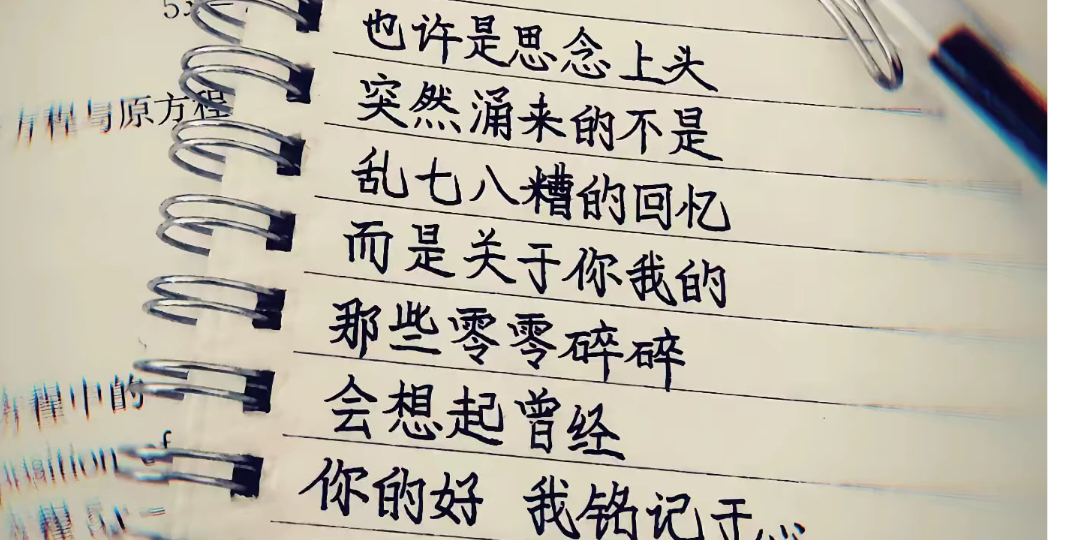 也许是思念上头
突然涌来的不是
乱七八糟的回忆
而是关于你我的
那些零零碎碎
会想起曾经
你的好 我铭记于心
方程与原方程
程中的